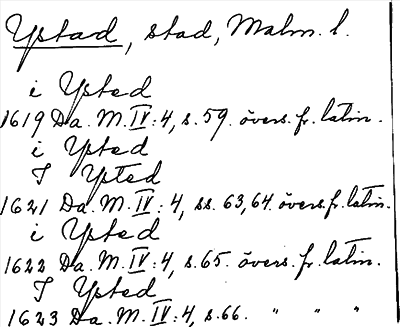 Ystad, stad, Malm. l.
i Ysted
1619 Da. M. IV: 4, s. 59. övers. fr. latin.
i Ysted
I Ysted
1621 Da. M. IV: 4, ss. 63, 64. övers. fr. latin.
i Ysted
1622 Da. M. IV: 4, s. 65. övers. fr. latin.
I Ysted
1623 Da. M. IV: 4, s. 66. " " "